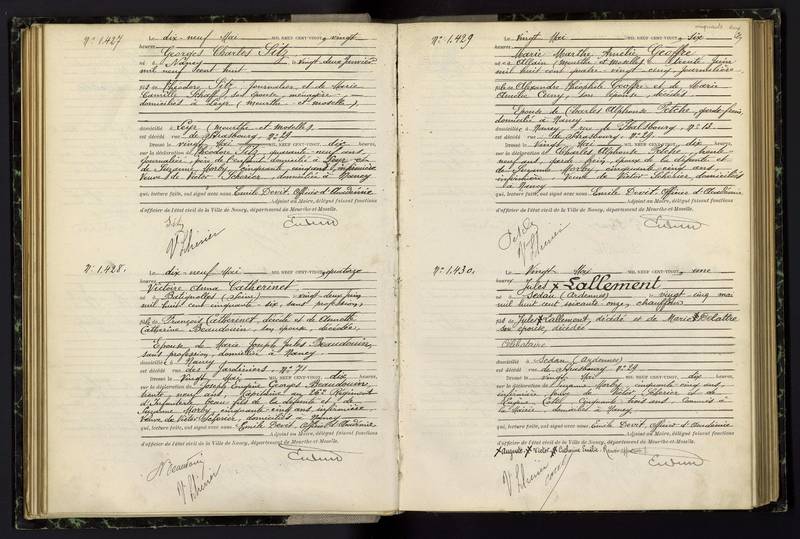 N° 1.427
Le dix-neuf Mai MIL NEUF CENT-VINGT, vingt
heures,
Georges Charles Sitz
né à Nancy, vingt deux Janvier
mil neuf cent huit
fils de Théodore Sitz journalier, et de Marie
Camille son épouse, ménagère,
domiciliés à (Meurthe et Moselle),
domicilié à (Meurthe et Moselle),
est décédé rue de Strasbourg, N° 29
Dressé le vingt Mai MIL NEUF CENT-VINGT, dix heures
sur la déclaration de Théodore Sitz, quarante neuf ans,
journalier, père de l'enfant domicilié à et
de Suzanne Morby, cinquante cinq ans, infirmière
Veuve de Victor domiciliée à Nancy
qui, lecture faite, ont signé avec nous Emile Devit, Officier d'Académie
Adjoint au Maire, délégué faisant fonctions
d'officier de l'état civil de la Ville de Nancy, département de Meurthe-et-Moselle.
Sitz
N° 1.428
Le dix-neuf Mai MIL NEUF CENT-VINGT, quatorze
heures
Victoire Anna Catherinet
née à Batignolles (Seine), vingt deux juin
mil huit cent cinquante-six, sans profession,
fille de François Catherinet, décédé et de Annette
Catherine Beaudouin, son épouse, décédée,
Epouse de Marie Joseph Jules Beaudouin,
sans profession, domicilié à Nancy
domiciliée à Nancy
est décédée rue des Jardiniers, N° 71
Dressé le Vingt Mai MIL NEUF CENT-VINGT, dix heures
sur la déclaration de Joseph Eugène Georges Beaudouin,
trente neuf ans, Capitaine au 26e Régiment
d'Infanterie, beau fils de la défunte et de
Suzanne Morby, cinquante cinq ans infirmière
veuve de Victor domiciliés à Nancy
qui, lecture faite, ont signé avec nous Emile Devit, Officier d'Académie
Adjoint au Maire, délégué faisant fonctions
d'officier de l'état civil de la Ville de Nancy, département de Meurthe-et-Moselle.
Beaudouin
N° 1.429
Le vingt Mai MIL NEUF CENT-VINGT, six
heures
Marie Marthe Amélie Geoffre
née à Allain (Meurthe et Moselle), trente Juin
mil huit cent quatre-vingt-cinq, journalière
fille de Alexandre Théophile Geoffre et de Marie
Amélie son épouse décédés
Epouse de Charles Alphonse Petche, garde-frein,
domicilié à Nancy
domiciliée à Nancy, rue de Phalsbourg, N° 13
est décédée rue de Strasbourg, N° 29
Dressé le vingt Mai MIL NEUF CENT-VINGT, dix heures
sur la déclaration de Charles Alphonse Petche,
neuf ans, garde frein, époux de la défunte et
de Suzanne Morby, cinquante cinq ans,
infirmière, Veuve de Victor domiciliés
à Nancy
qui, lecture faite, ont signé avec nous Emile Devit, Officier d'Académie
Adjoint au Maire, délégué faisant fonctions
d'officier de l'état civil de la Ville de Nancy, département de Meurthe-et-Moselle.
Petche
N° 1.430
Le Vingt Mai MIL NEUF CENT-VINGT, une
heures
Jules Lallement
né à Sedan (Ardennes), vingt cinq mai
mil huit cent soixante onze, chauffeur
fils de Jules Lallement, décédé et de Marie Delattre
son épouse, décédée
Célibataire
domicilié à Sedan (Ardennes)
est décédé rue de Strasbourg N° 29
Dressé le vingt Mai MIL NEUF CENT-VINGT, dix heures
sur la déclaration de Suzanne Morby, cinquante cinq ans,
infirmière, veuve de Victor et de
Eugène cinquante trois ans, employé à
la Mairie, domiciliés à Nancy
qui, lecture faite, ont signé avec nous Emile Devit, Officier d'Académie
Adjoint au Maire, délégué faisant fonctions
d'officier de l'état civil de la Ville de Nancy, département de Meurthe-et-Moselle.
Auguste, Victor, Catherine Emélie